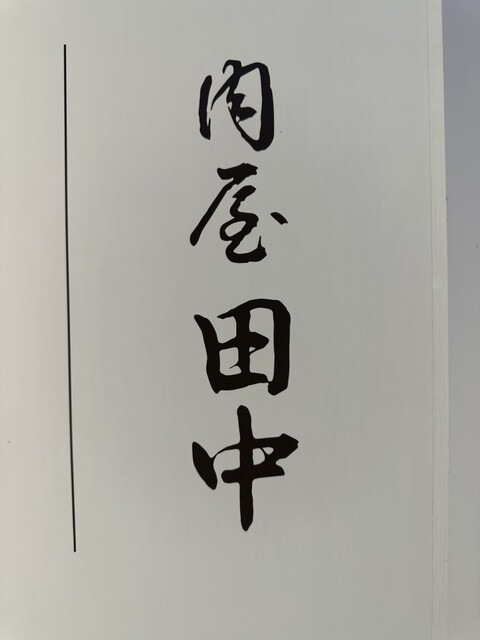 肉屋 田中